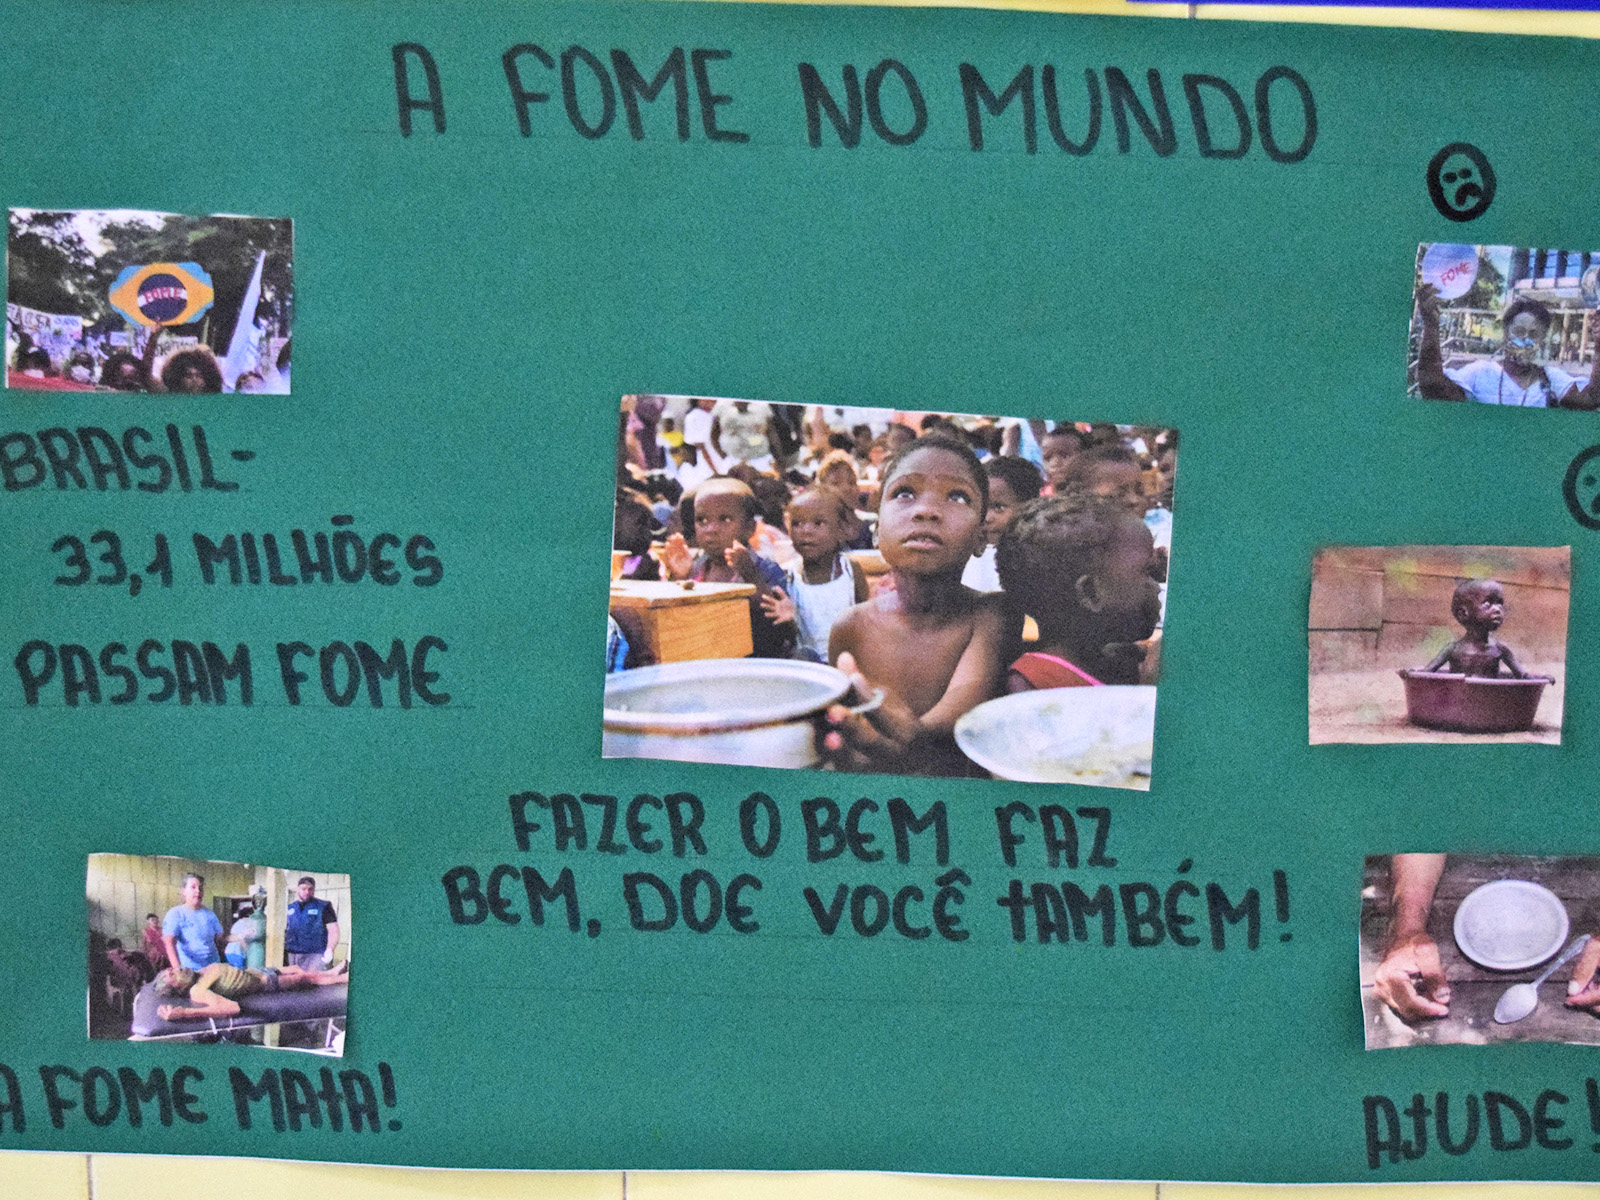 A FOME NO MUNDO
FOME
FOME
BRASIL-
33,1 MILHÕES
PASSAM FOME
FAZER O BEM FAZ
BEM, DOE VOCÊ TAMBÉM!
A FOME MATA!
AJUDE!